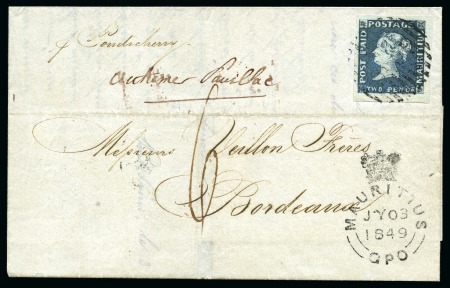 POSTAGE
POST PAID
MAURITIUS
TWO PENCE
p Pondicherry
Pauillac
6
Messieurs Veillon Frères
Bordeaux
MAURITIUS
JY 03
1849
GPO